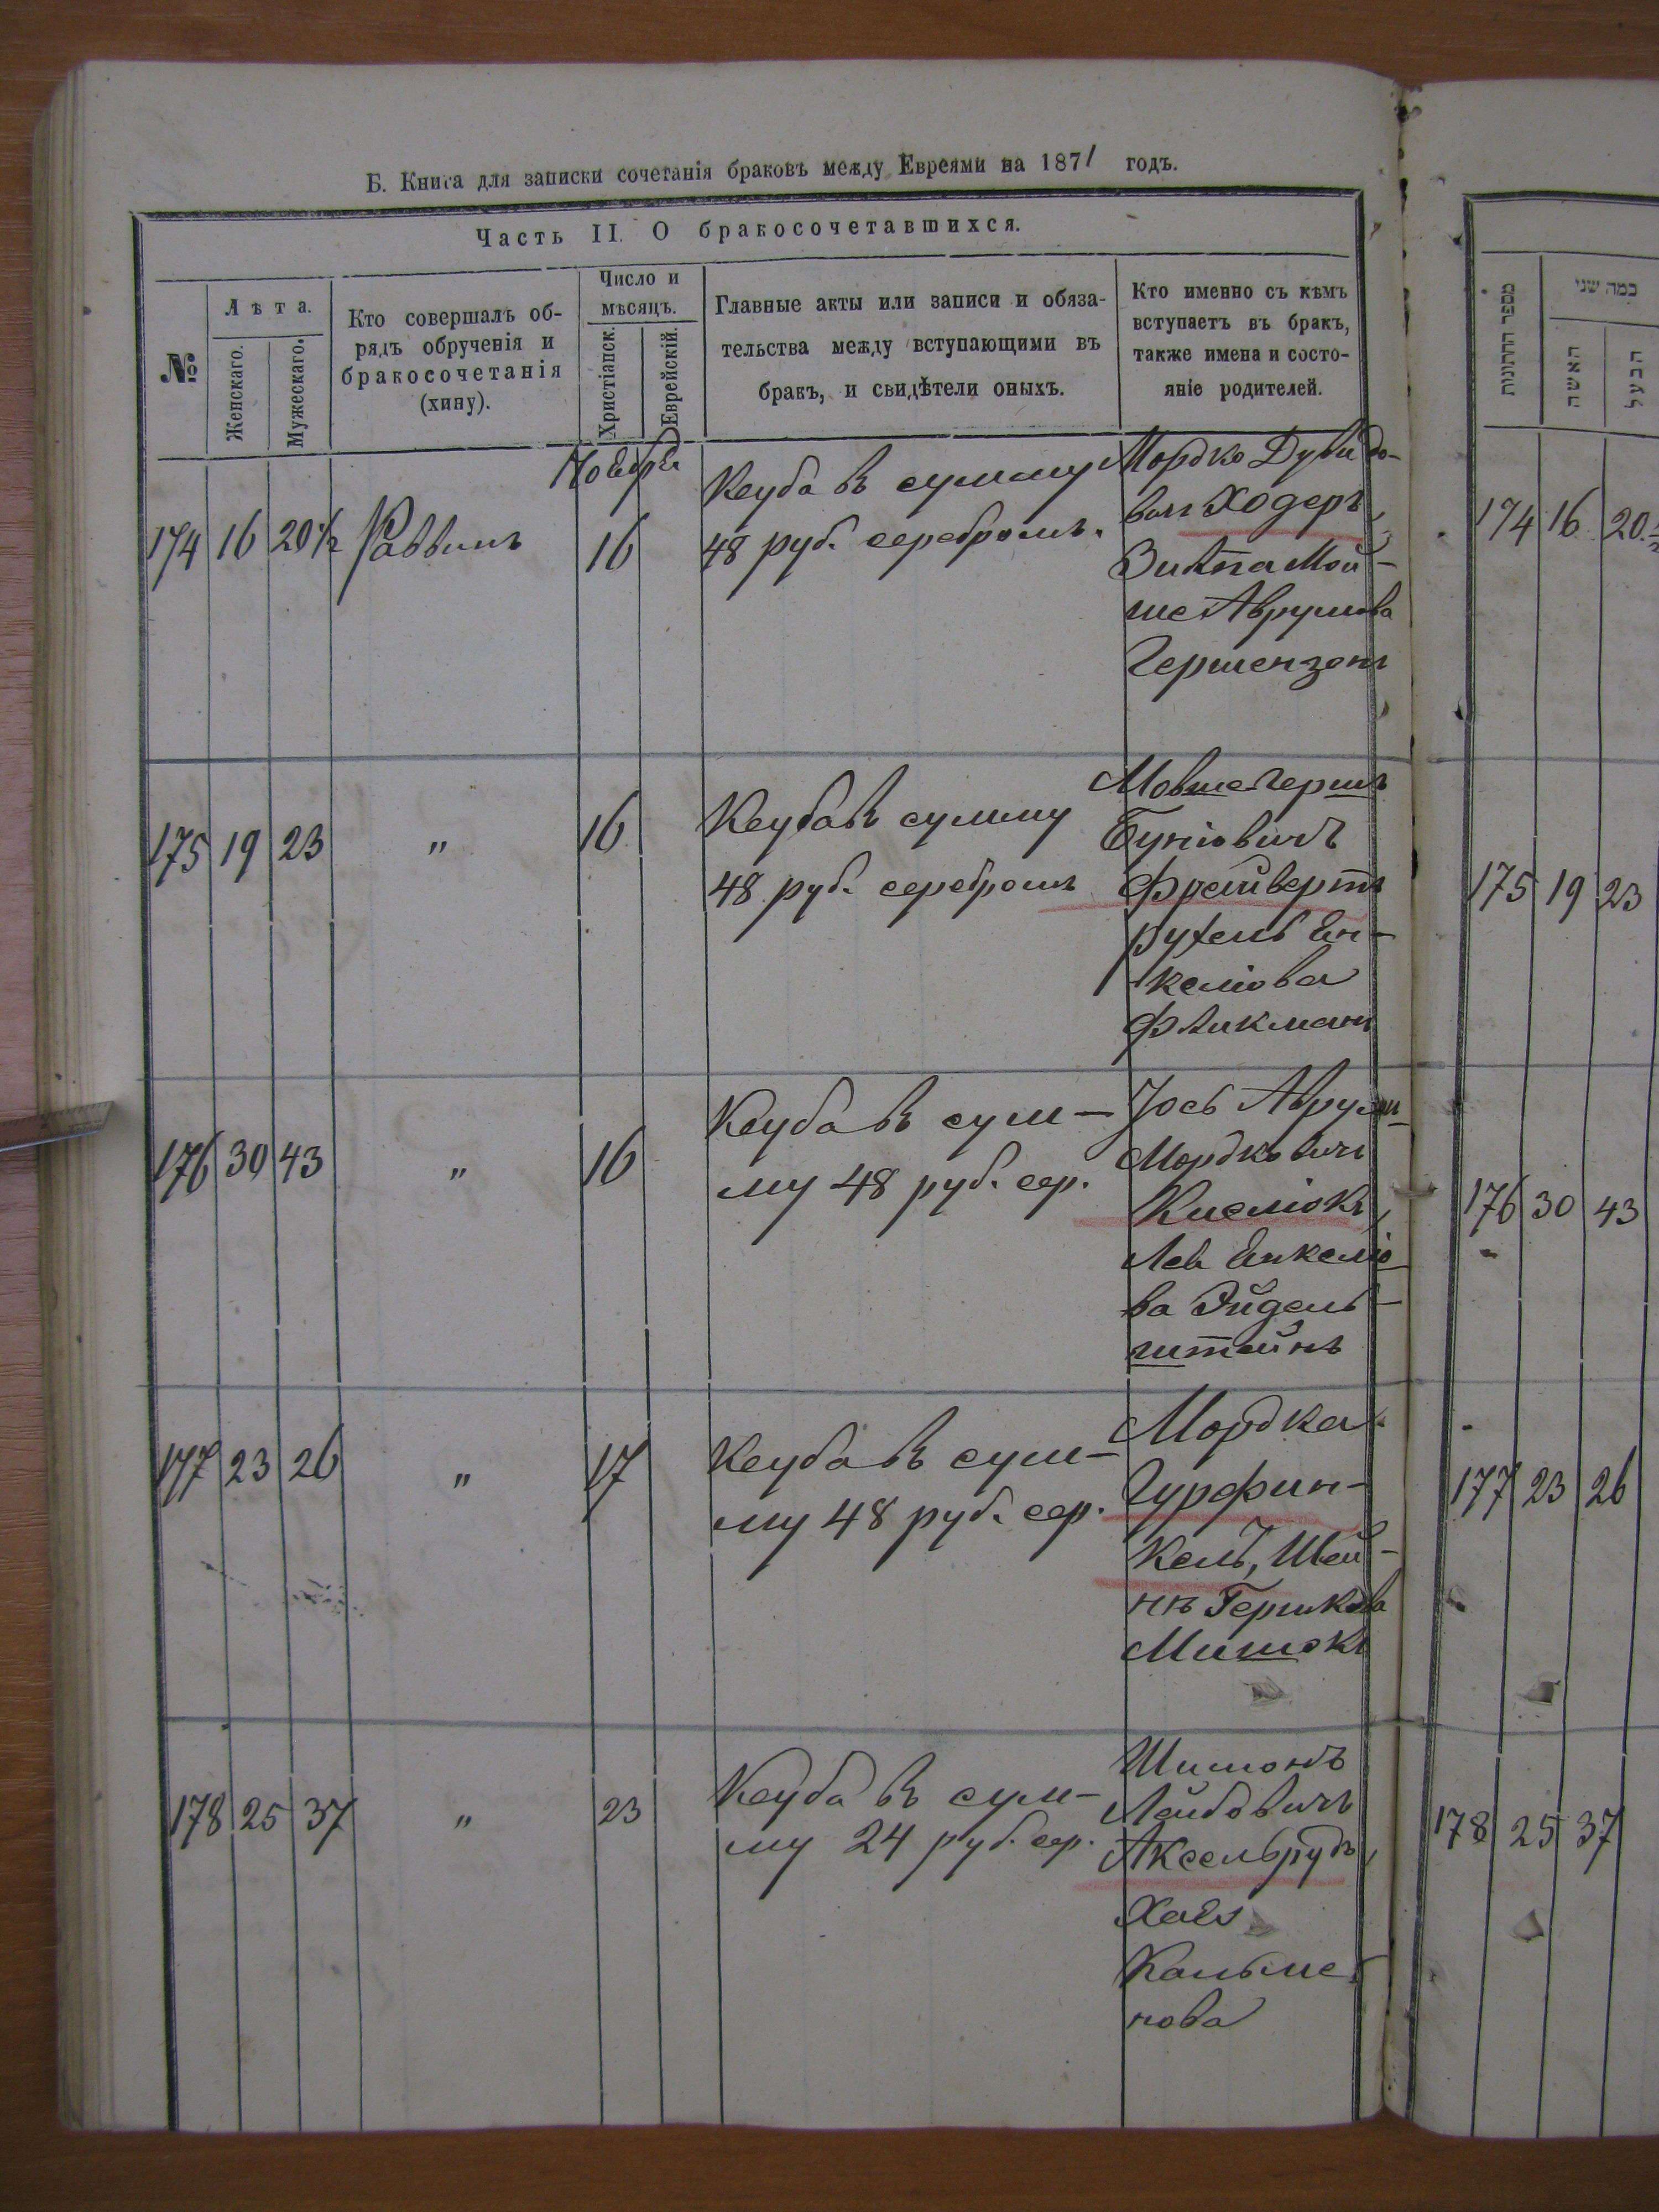 Б. Книга для записки сочетанія браковъ между Евреями на 1871 годъ.
Часть II. О бракосочетавшихся.
№
Лѣта.
Женскаго.
Мужескаго.
Кто совершалъ об-
рядъ обрученія и
бракосочетанія
(хипу).
Число и
мѣсяцъ.
Христіанск.
Еврейскій.
Главные акты или записи и обяза-
тельства между вступающими въ
бракъ, и свидѣтели оныхъ.
Кто именно съ кѣмъ
вступаетъ въ бракъ,
также имена и состо-
яніе родителей.
Ноября
174 16 20½ Раввинъ 16
Кеуба въ сумму
48 руб. серебромъ.
Мордко Дувидо-
вичъ Ходеръ,
Мой-
ше Аврумова
Гершензонъ
175 19 23 " 16
Кеуба въ сумму
48 руб. серебромъ
Мовше Гершъ
Буніовичъ
Фрейвертъ
Рухель Ен-
келіова
Фликманъ
176 30 43 " 16
Кеуба въ сум-
му 48 руб. сер.
Іось Аврумъ
Мордковичъ
Киселіокъ,
Лея Енкеліо
ва Эйдель-
штейнъ
177 23 26 " 17
Кеуба въ сум-
му 48 руб. сер.
Мордка
Гурфин-
кель, Шей-
на Гершкова
Мишокъ
178 25 37 " 23
Кеуба въ сум-
му 24 руб. сер.
Шимонъ
Лейбовичъ
Аксельрудъ,
Хая
Кальме-
нова
מספר החתונות
כמה שני
האשה
הבעל
174 16 20.½
175 19 23
176 30 43
177 23 26
178 25 37